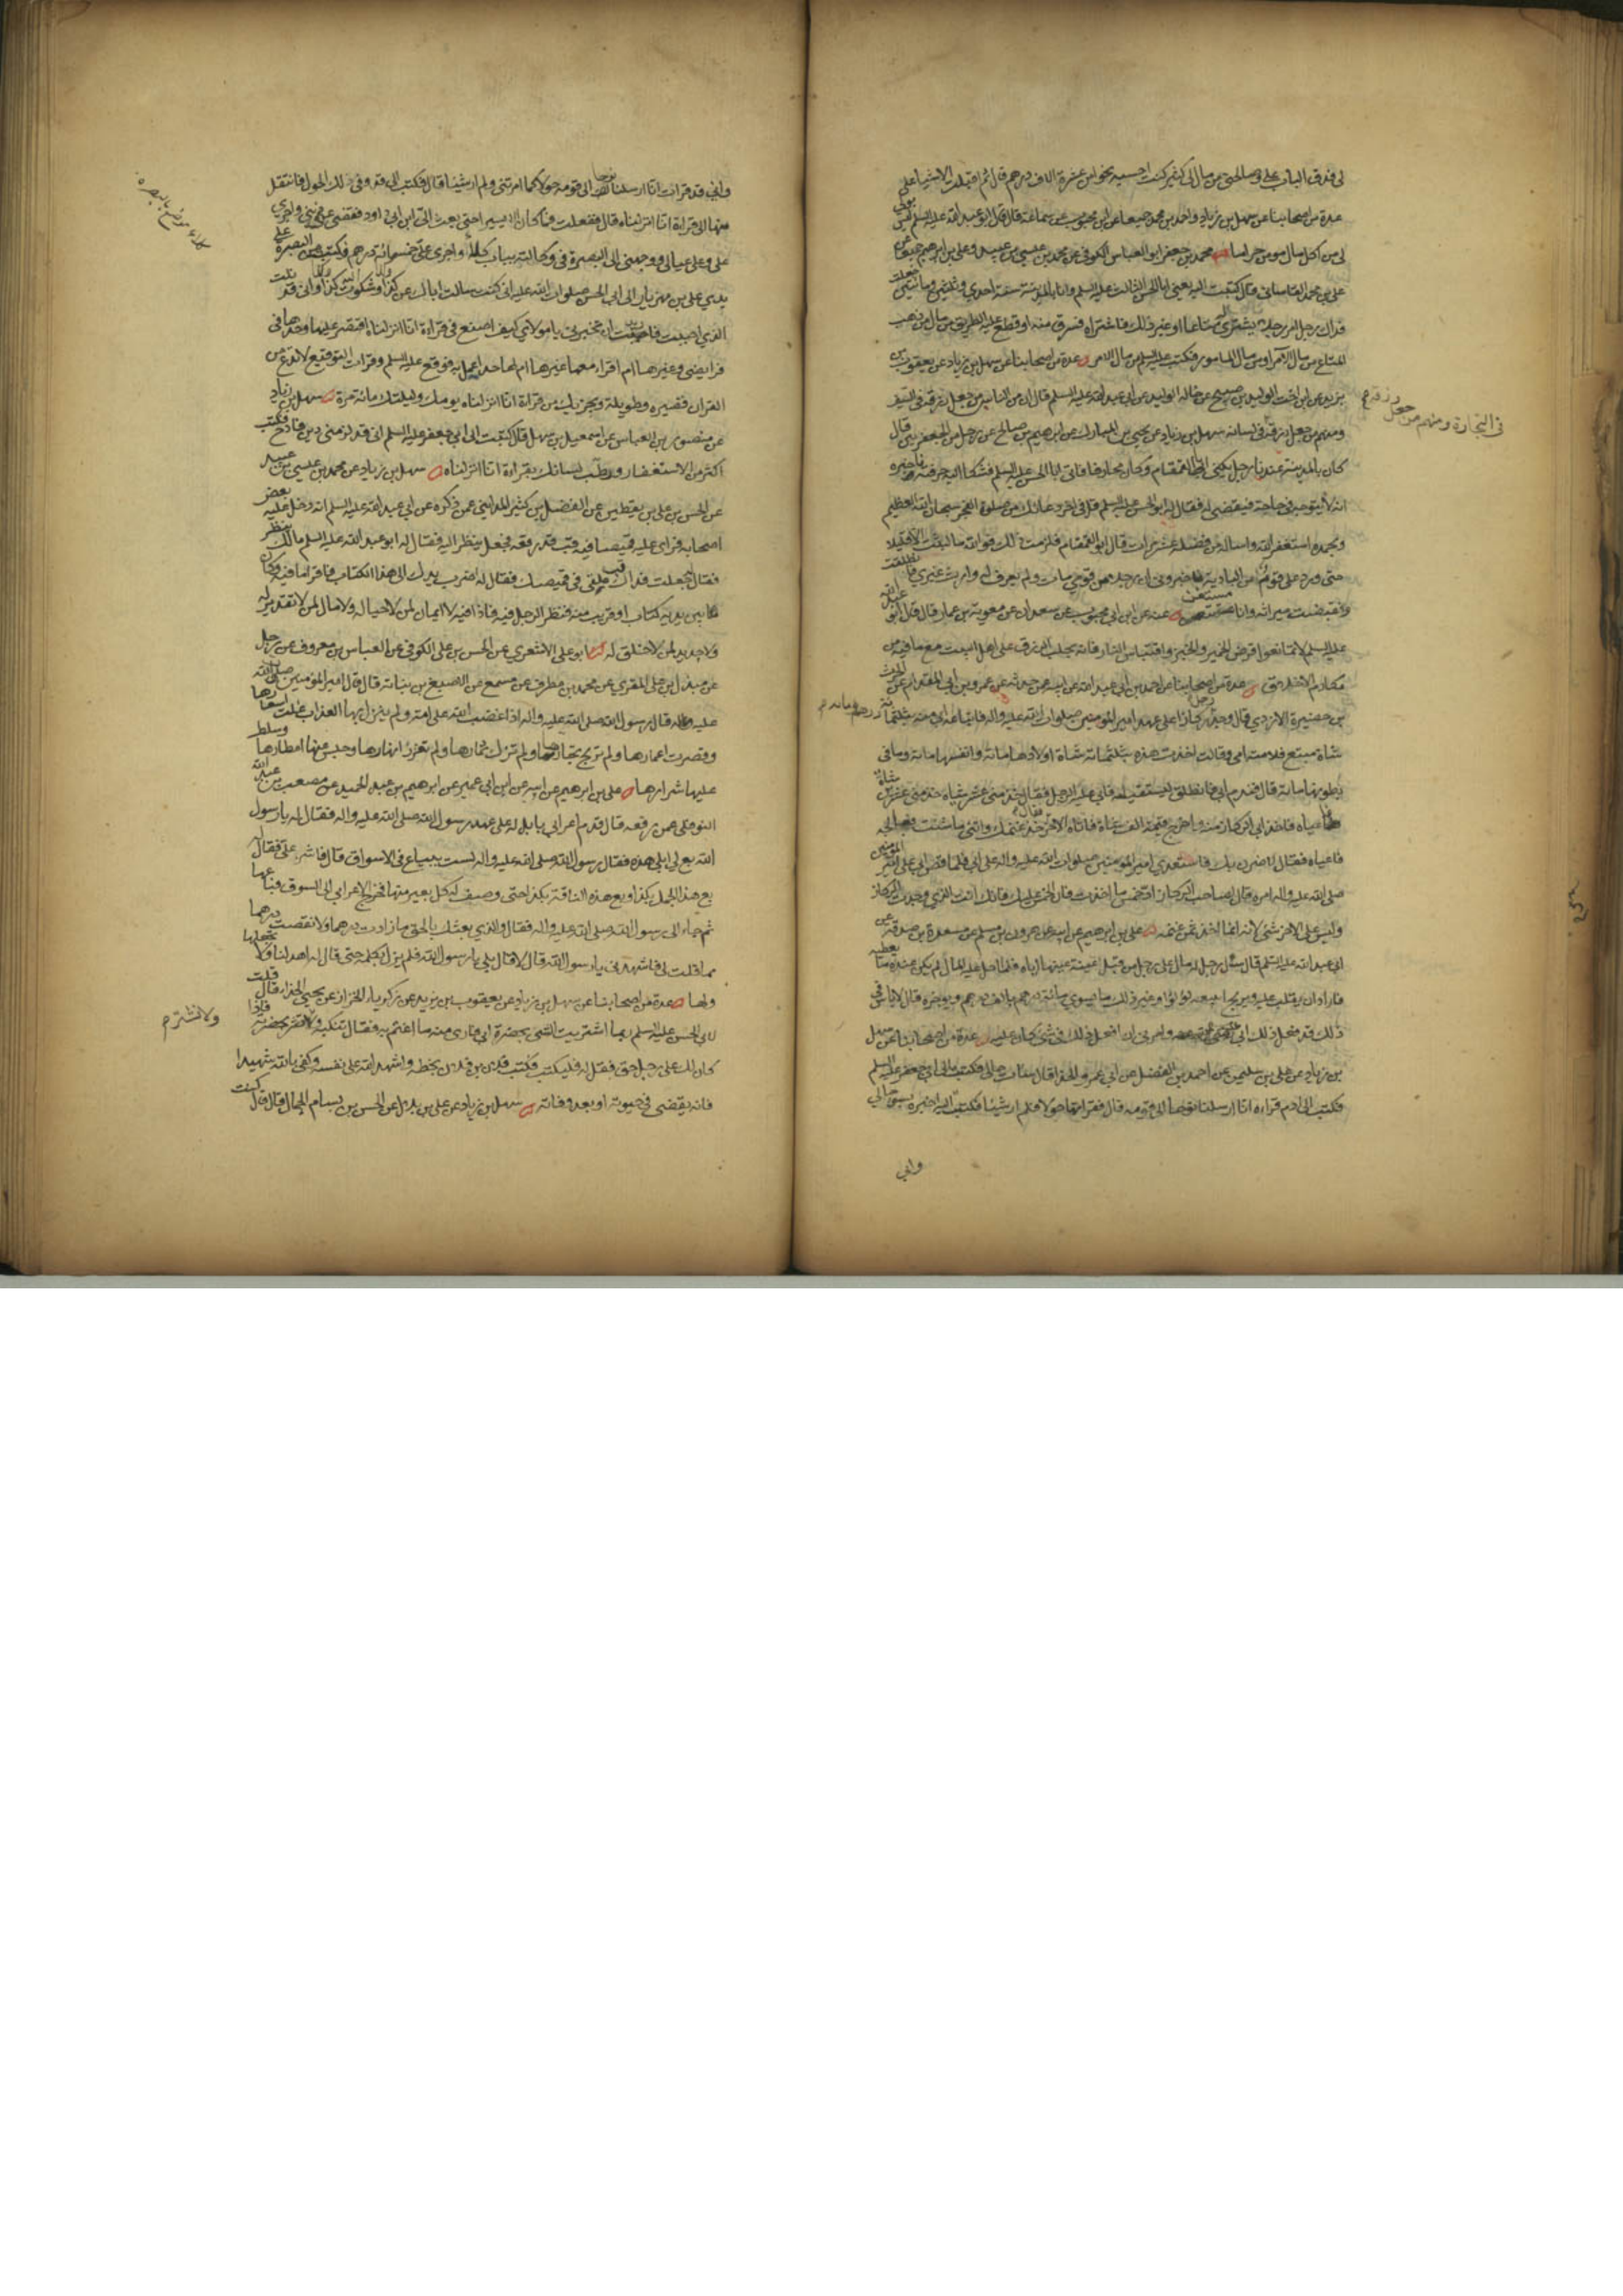 عدة من اصحابنا عن سهل بن زياد واحمد بن محمد جميعا عن ابن محبوب عن سماعة قال قال ابو عبد الله عليه السلم ليس
لي من اكل مال مومن حراما محمد بن جعفر ابو العباس الكوفي عن محمد بن عيسى بن عبيد وعلي بن ابرهيم جميعا عن
علي بن محمد القاساني قال كتبت اليه يعني ابا الحسن الثالث عليه السلم وانا بالمدينة سنة احدى وثلثين ومائتين جعلت
فداك رجل امر رجلا يشترى له متاعا او غير ذلك فاشتراه فسرق منه او قطع عليه الطريق من مال من ذهب
المتاع من مال الامر او من مال المامور فكتب عليه السلم من مال الامر عدة من اصحابنا عن سهل بن زياد عن يعقوب بن
يزيد عن ابن اخت الوليد بن صبيح عن خاله الوليد عن ابي عبد الله عليه السلم قال ان من الناس من جعل رزقه في السيف
ومنهم من جعل رزقه في لسانه سهل بن زياد عن يحيى بن المبارك عن ابرهيم بن صالح عن رجل من الجعفريين قال
كان بالمدينة عندنا رجل يكنى ابا القمقام وكان محارفا فاتى ابا الحسن عليه السلم فشكا اليه حرفته واخبره
انه لا يتوجه في حاجة فيقضى له فقال له ابو الحسن عليه السلم قل في اخر دعائك من صلوة الفجر سبحان الله العظيم
وبحمده استغفر الله واساله من فضله عشر مرات قال ابو القمقام فلزمت ذلك فوالله ما لبثت الا قليلا
حتى ورد على قوم من البادية فاخبروني ان رجلا من قومي مات ولم يعرف له وارث غيري فانطلقت
وقبضت ميراثه وانا مستغن عنه عن ابن محبوب عن سعدان عن معوية بن عمار قال قال ابو عبد الله
عليه السلم لا تمانعوا قرض الخمير والخبز واقتباس النار فانه يجلب الرزق على اهل البيت مع ما فيه من
مكارم الاخلاق عدة من اصحابنا عن احمد بن ابي عبد الله عن ابيه عمن حدثه عن عمرو بن ابي المقدام عن الحرث
بن حضيرة الازدي قال وجد رجل ركازا على عهد امير المؤمنين صلوات الله عليه واله فابتاعه ابي منه بثلثمائة درهم ومائة
شاة متبع فلامته امي وقالت اخذت هذه بثلثمائة شاة اولادها مائة وانفسها مائة وما في
بطونها مائة قال فندم ابي فانطلق ليستقيله فابى عليه الرجل فقال خذ مني عشر شياه خذ مني عشرين شاة
فاعياه فاخذ ابي الركاز منه واخرج قيمة الف شاة فاتاه الاخر فقال خذ غنمك واتني ما شئت فعالجه
فاعياه فقال لاضرن بك فاستعدى امير المؤمنين صلوات الله عليه واله على ابي فلما قص ابي على امير المؤمنين
صلى الله عليه واله امره قال لصاحب الركاز اد خمس ما اخذت فان الخمس عليك فانك انت الذي وجدت الركاز
وليس على الاخر شئ لانه انما اخذ ثمن غنمه علي بن ابرهيم عن ابيه عن هرون بن مسلم عن مسعدة بن صدقة عن
ابي عبد الله عليه السلم قال سئل رجل له مال على رجل من قبل عينة عينها اياه فلما حل عليه المال لم يكن عنده ما يعطيه
فاراد ان يقلب عليه ويربح ايبيعه لؤلؤا وغير ذلك ما يسوي مائة درهم بالف درهم ويؤخره قال لا باس
ذلك قد فعل ذلك ابي وامرني ان افعل ذلك في شئ كان عليه عدة من اصحابنا عن سهل
بن زياد عن علي بن سليمن عن احمد بن الفضل عن ابي عمرو الحذا قال سائت حالي فكتبت الى ابي جعفر عليه السلم
فكتب الى ادم قراءة انا ارسلنا نوحا الى قومه قال فقراتها حولا فلم ار شيئا فكتبت اليه اخبره بسوء حالي
واني
في التجارة ومنهم من جعل رزقه
واني قد قرات انا ارسلنا نوحا الى قومه حولا كما امرتني ولم ار شيئا قال فكتب الى قد وفى لك الحول فانتقل
منها الى قراءة انا انزلناه قال ففعلت فما كان الا يسيرا حتى بعث الى ابن ابي داود فقضى عني ديني واجرى
علي وعلى عيالي ووجهني الى البصرة في وكالته بباب كلاء واجرى علي خمسمائة درهم وكتبت من البصرة على
يدي علي بن مهزيار الى ابي الحسن صلوات الله عليه اني كنت سالت اباك عن كذا وكذا وشكوت اليه كذا وكذا واني قد نلت
الذي احببت فاحببت ان تخبرني يا مولاي كيف اصنع في قراءة انا انزلناه اقتصر عليها وحدها في
فرايضي وغيرها ام اقرا معها غيرها ام لها حد اعمل به فوقع عليه السلم وقرات التوقيع لا تدع من
القران قصيره وطويله ويجزيك من قراءة انا انزلناه يومك وليلتك مائة مرة سهل بن زياد
عن منصور بن العباس عن اسمعيل بن سهل قال كتبت الى ابي جعفر عليه السلم اني قد لزمني دين فادح فكتب
اكثر من الاستغفار ورطب لسانك بقراءة انا انزلناه سهل بن زياد عن محمد بن عيسى بن عبيد
عن الحسن بن علي بن يقطين عن الفضل بن كثير المدايني عمن ذكره عن ابي عبد الله عليه السلم انه دخل عليه بعض
اصحابه فراى عليه قميصا فيه قب قد رقعه فجعل ينظر اليه فقال له ابو عبد الله عليه السلم مالك تنظر
فقال جعلت فداك قب ملقى في قميصك فقال له اضرب يدك الى هذا الكتاب فاقرا ما فيه وكان
بين يديه كتاب او قريب منه فنظر الرجل فيه فاذا فيه لا ايمان لمن لا حيا له ولا مال لمن لا تقدير له
ولا جديد لمن لا خلق له ابو علي الاشعري عن الحسن بن علي الكوفي عن العباس بن معروف عن رجل
عن مندل بن علي العنزي عن محمد بن مطرف عن مسمع عن الاصبغ بن نباتة قال قال امير المؤمنين صلى الله
عليه قال رسول الله صلى الله عليه واله اذا غضب الله على امة ولم ينزل بها العذاب غلت اسعارها
وقصرت اعمارها ولم تربح تجارها ولم تزك ثمارها ولم تغزر انهارها وحبس عنها امطارها وسلط
عليها شرارها علي بن ابرهيم عن ابيه عن ابن ابي عمير عن ابرهيم بن عبد الحميد عن مصعب بن عبد الله
النوفلي عمن رفعه قال قدم اعرابي بابل له على عهد رسول الله صلى الله عليه واله فقال له يا رسول
الله بع لي ابلي هذه فقال رسول الله صلى الله عليه واله لست ببياع في الاسواق قال فاشر علي فقال
بع هذا الجمل بكذا وبع هذه الناقة بكذا حتى وصف له كل بعير منها فخرج الاعرابي الى السوق فباعها
ثم جاء الى رسول الله صلى الله عليه واله فقال والذي بعثك بالحق ما زادت درهما ولا نقصت درهما
مما قلت لي فاستهدني يا رسول الله قال لا قال بلى يا رسول الله فلم يزل يكلمه حتى قال له اهد لنا ولا تجعلها
ولها عدة من اصحابنا عن سهل بن زياد عن يعقوب بن يزيد عن زكريا الخزاز عن يحيى الحذاء قال قلت
لابي الحسن عليه السلم ربما اشتريت الشئ بحضرة ابي فارى منه ما اغتم به فقال تنكبه ولا تشتر بحضرته فاذا
كان لك على رجل حق فقل له فليكتب وكتب فلان بن فلان بخطه واشهد الله على نفسه وكفى بالله شهيدا
فانه يقضى في حيوته او بعد وفاته سهل بن زياد عن علي بن بلال عن الحسن بن بسام الجمال قال كنت
كلاء موضع بالبصرة
ولا تشتر م